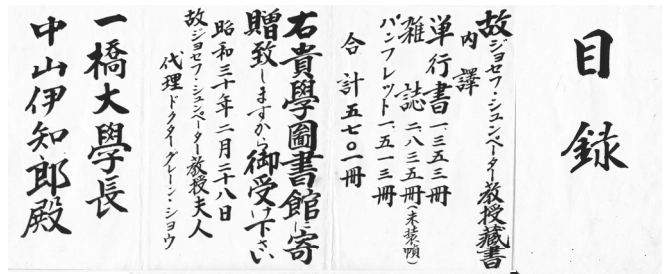 目録
故ジョセフ・シュンペーター教授藏書
内譯
単行書 一、三五三冊
雑誌 二、八三五冊(未装幀)
パンフレット 一、五一三冊
合計 五七〇一冊
右貴學圖書館に寄
贈致しますから御受け下さい
昭和三十年二月二十八日
故ジョセフ・シュンペーター教授夫人
代理 ドクターグレーン・ショウ
一橋大學長
中山伊知郎殿